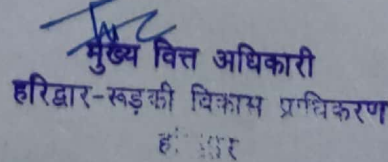 मुख्य वित्त अधिकारी
हरिद्वार-रूड़की विकास प्राधिकरण